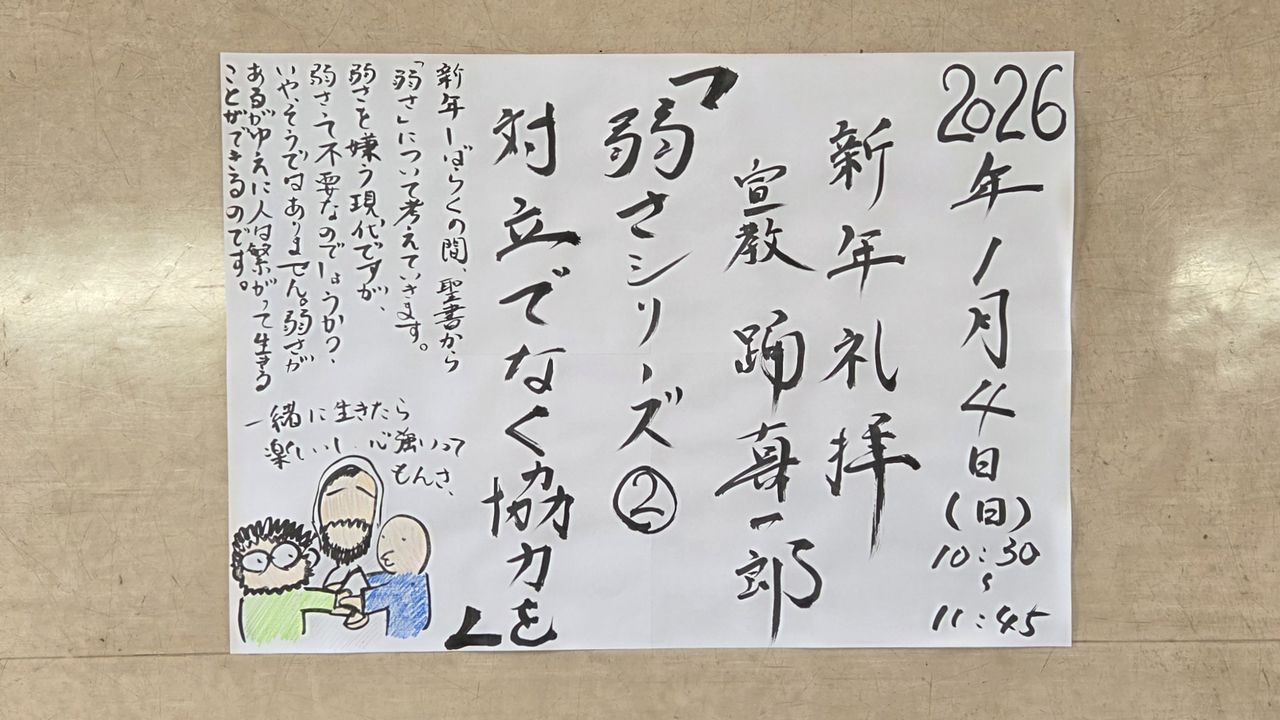 2026年1月4日(日)
10:30
〜
11:45
新年礼拝
宣教 踊喜一郎
「弱さシリーズ②
対立でなく協力を」
新年しばらくの間、聖書から
「弱さ」について考えていきます。
弱さを嫌う現代ですが、
弱さって不要なのでしょうか?、
いや、そうではありません。弱さが
あるがゆえに人は繋がって生きる
ことができるのです。
一緒に生きたら
楽しいし、心強いって
もんさ、